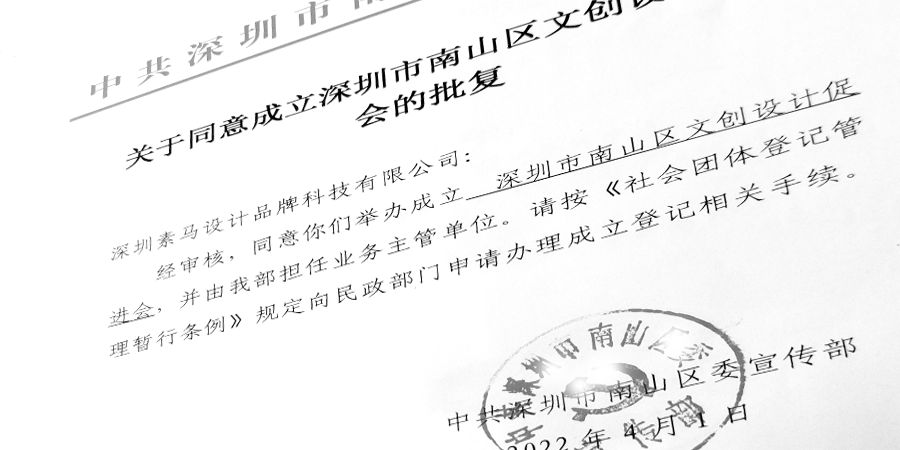 中共深圳市南
关于同意成立深圳市南山区文创设
会的批复
深圳素马设计品牌科技有限公司：
经审核，同意你们举办成立 深圳市南山区文创设计促
进会，并由我部担任业务主管单位。请按《社会团体登记管
理暂行条例》规定向民政部门申请办理成立登记相关手续。
中共深圳市南山区委宣传部
2022年4月1日